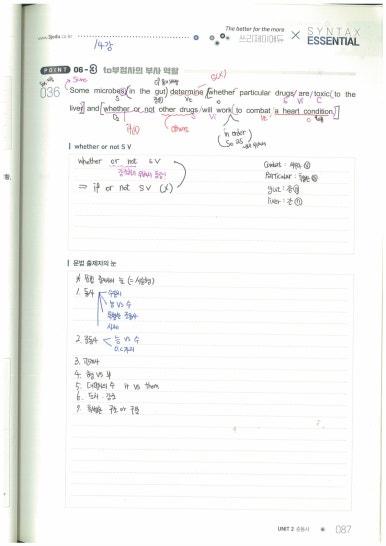 www.3jedu.co.kr
The better for the more
쓰리제이에듀 × SYNTAX ESSENTIAL
14강
POINT 06-3 to부정사의 부사 역할
Some
S(X)
036 Some microbes (in the gut) determine [whether particular drugs are toxic (to the
S V C
liver)] and [whether or not other drugs will work (to combat a heart condition.)]
if(X) others S Vi
in order
so as
whether or not S V
whether or not S V
⇒ if or not S V (X)
combat :
particular :
gut : 장
liver : 간
문법 출제자의 눈
1. 동사 수일치
능 vs 수
시제
2. 준동사 능 vs 수
3. 관계사
4. 형 vs 부
5. 대명사의 수 it vs them
6. 도치 · 강조
7. 특별한 구조 or 구문
UNIT 2 준동사 087